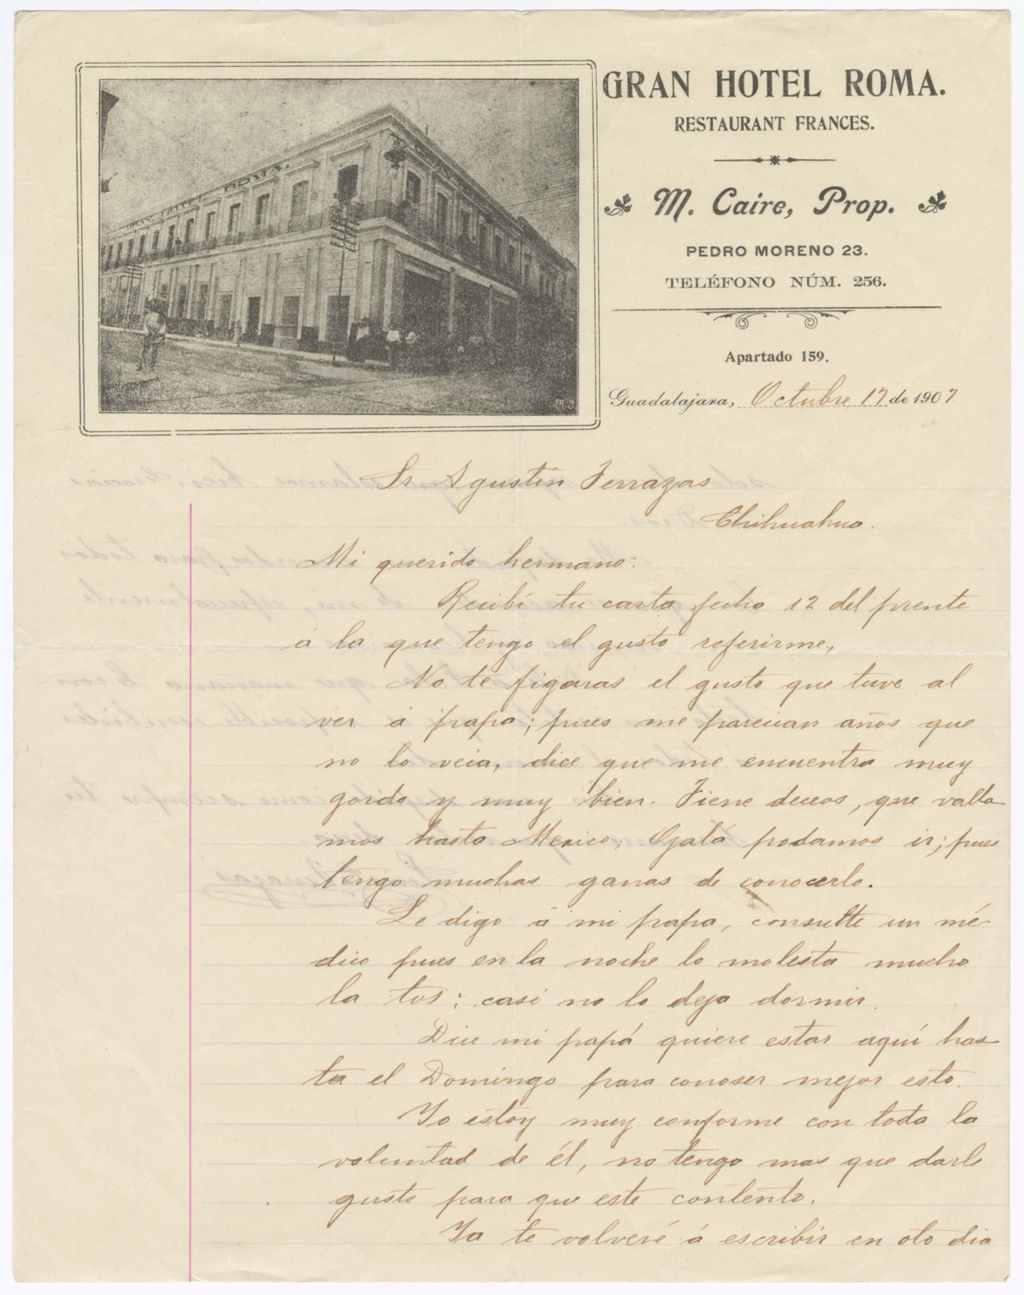 GRAN HOTEL ROMA.
RESTAURANT FRANCES.
M. Caire, Prop.
PEDRO MORENO 23.
TELÉFONO NÚM. 256.
Apartado 159.
Guadalajara, Octubre 17 de 1907
Sr. Agustín Terrazas
Chihuahua.
Mi querido hermano:
Recibí tu carta fecha 12 del prente
á la que tengo el gusto referirme,
No te figuras el gusto que tuve al
ver á papa; pues me parecian años que
no lo veia, dice que me encuentra muy
gordo y muy bien. Tiene deceos, que valla
mos hasta Mexico, Ojalá podamos ir; pues
tengo muchas ganas de conocerlo.
Le digo á mi papa, consulte un mé
dico pues en la noche lo molesta mucho
la tos; casi no lo deja dormir.
Dice mi papá quiere estar aquí has
ta el Domingo para conoser mejor esto.
Yo estoy muy conforme con toda la
voluntad de él, no tengo mas que darle
gusto para que esté contento.
Ya te volveré á escribir en oto dia